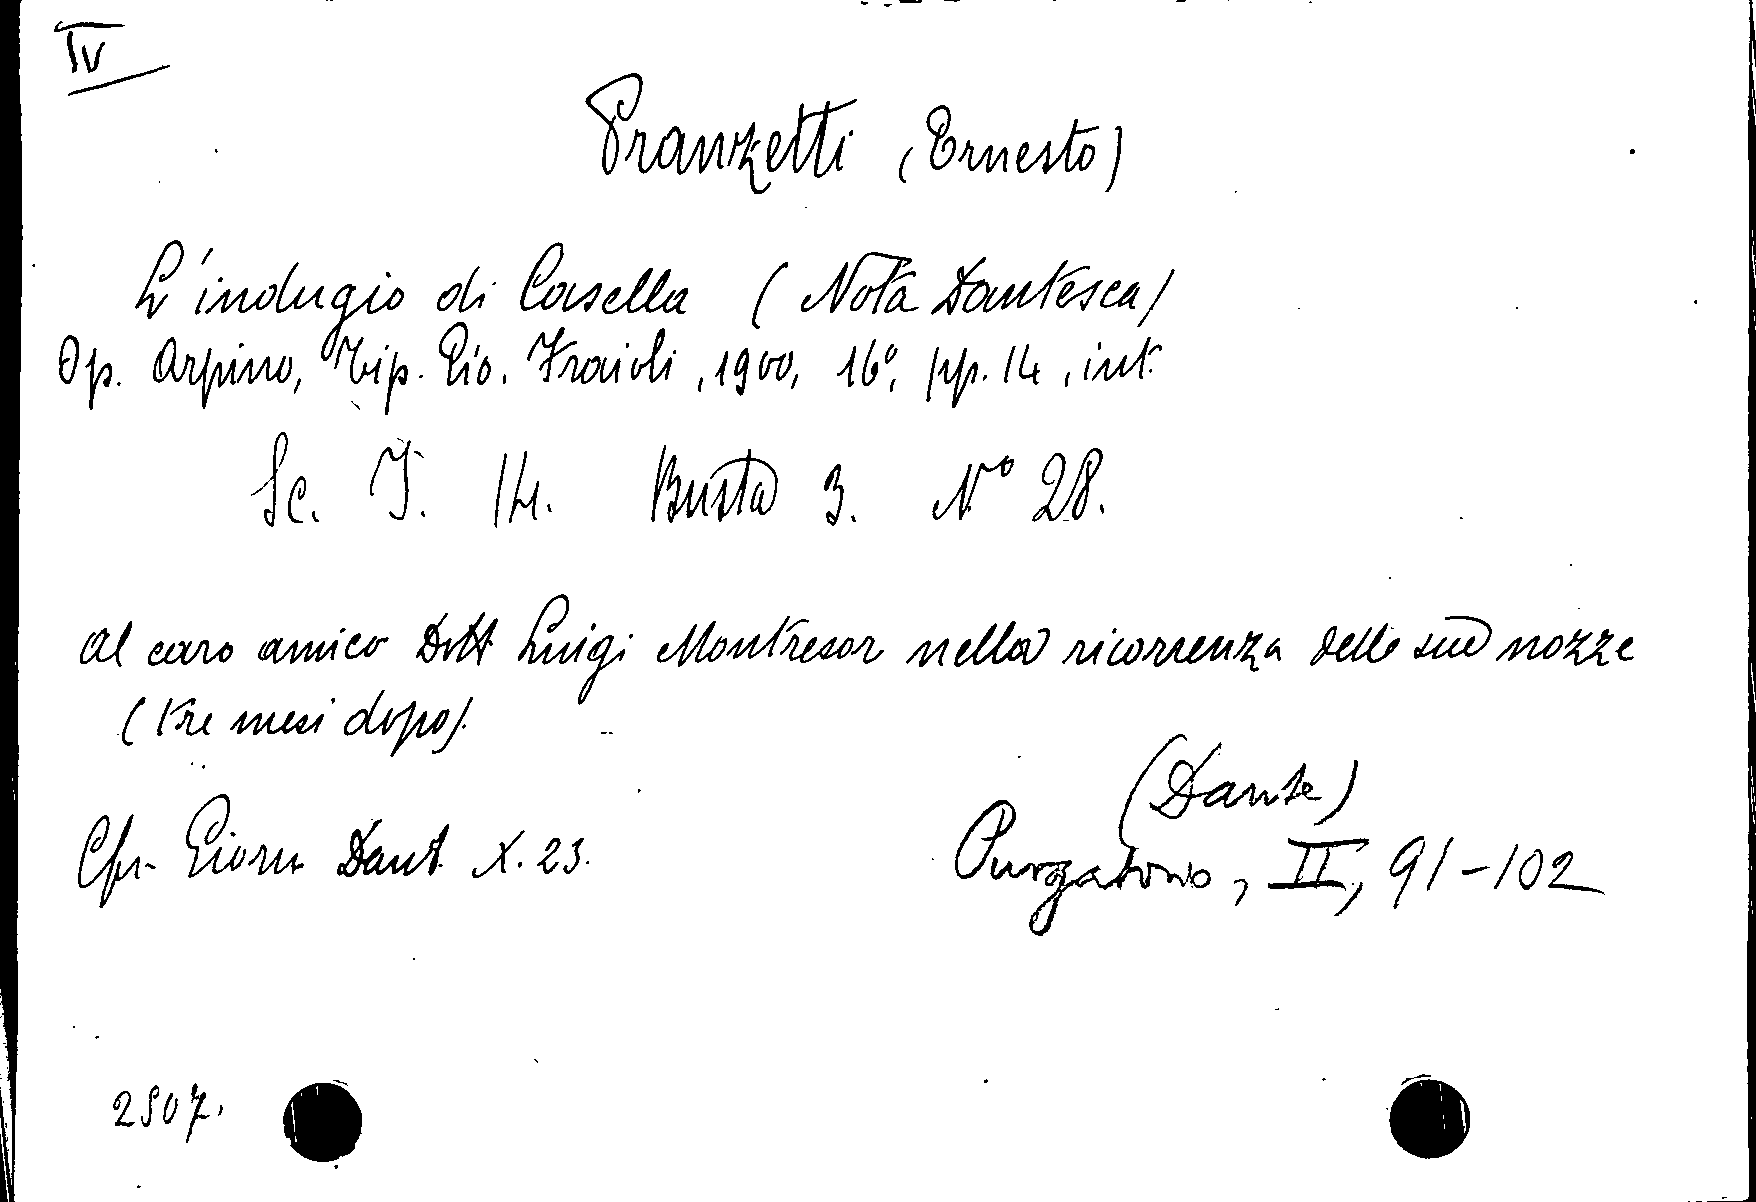 IV
Pranzetti (Ernesto)
L'indugio di Casella (Nota Dantesca)
Op. Arpino, Tip. Gio. Fraioli, 1900, 16°, pp. 14, int.
Sc. I. 14. Busta 3. N° 28.
Al caro amico Dott Luigi Montresor nella ricorrenza delle sue nozze
(tre mesi dopo).
(Dante)
Cfr. Giorn Dant. X. 23.
Purgatorio, II, 91-102
2507.